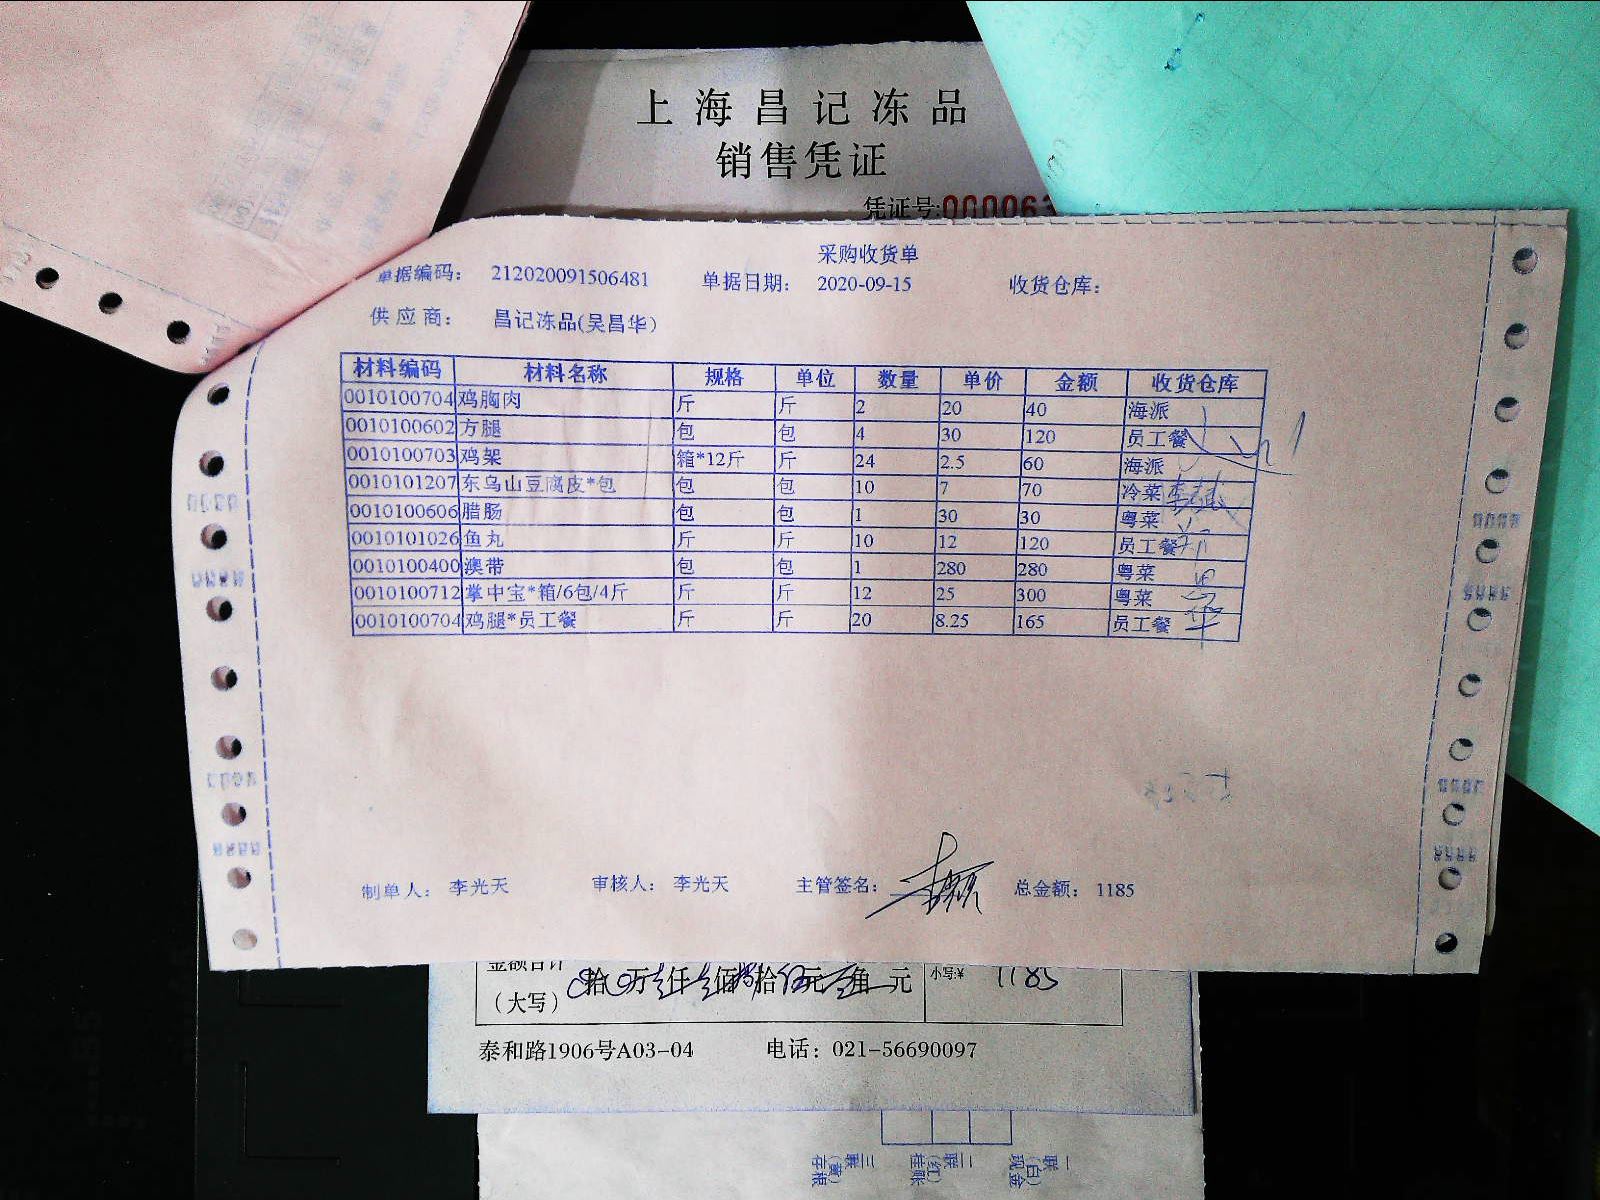 上海昌记冻品
销售凭证
凭证号:000063
采购收货单
单据编码： 212020091506481 单据日期： 2020-09-15 收货仓库：
供应商： 昌记冻品(吴昌华)
材料编码 材料名称 规格 单位 数量 单价 金额 收货仓库
0010100704 鸡胸肉 斤 斤 2 20 40 海派
0010100602 方腿 包 包 4 30 120 员工餐
0010100703 鸡架 箱*12斤 斤 24 2.5 60 海派
0010101207 东乌山豆腐皮*包 包 包 10 7 70 冷菜
0010100606 腊肠 包 包 1 30 30 粤菜
0010101026 鱼丸 斤 斤 10 12 120 员工餐
0010100400 澳带 包 包 1 280 280 粤菜
0010100712 掌中宝*箱/6包/4斤 斤 斤 12 25 300 粤菜
0010100704 鸡腿*员工餐 斤 斤 20 8.25 165 员工餐
制单人： 李光天 审核人： 李光天 主管签名： 总金额： 1185
金额合计 拾 万 仟 佰 拾 元 角 元 小写:¥ 1185
（大写）
泰和路1906号A03-04 电话：021-56690097
一联（白）现金
二联（红）挂账
三联（黄）存根